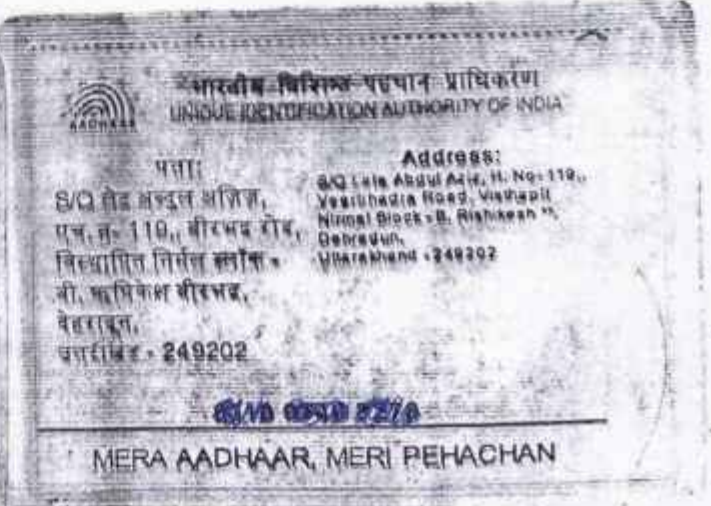 भारतीय विशिष्ट पहचान प्राधिकरण
UNIQUE IDENTIFICATION AUTHORITY OF INDIA
AADHAAR
पता:
S/O लेट अब्दुल अज़िज़,
एच. न- 119,, बीरभद्र रोड,
विस्थापित निर्मल ब्लॉक -
बी, ऋषिकेश बीरभद्र,
देहरादून,
उत्तराखंड - 249202
Address:
S/O Late Abdul Aziz, H. No- 119,,
Veerbhadra Road, Visthapit
Nirmal Block - B, Rishikesh
Dehradun,
Uttarakhand - 249202
MERA AADHAAR, MERI PEHACHAN